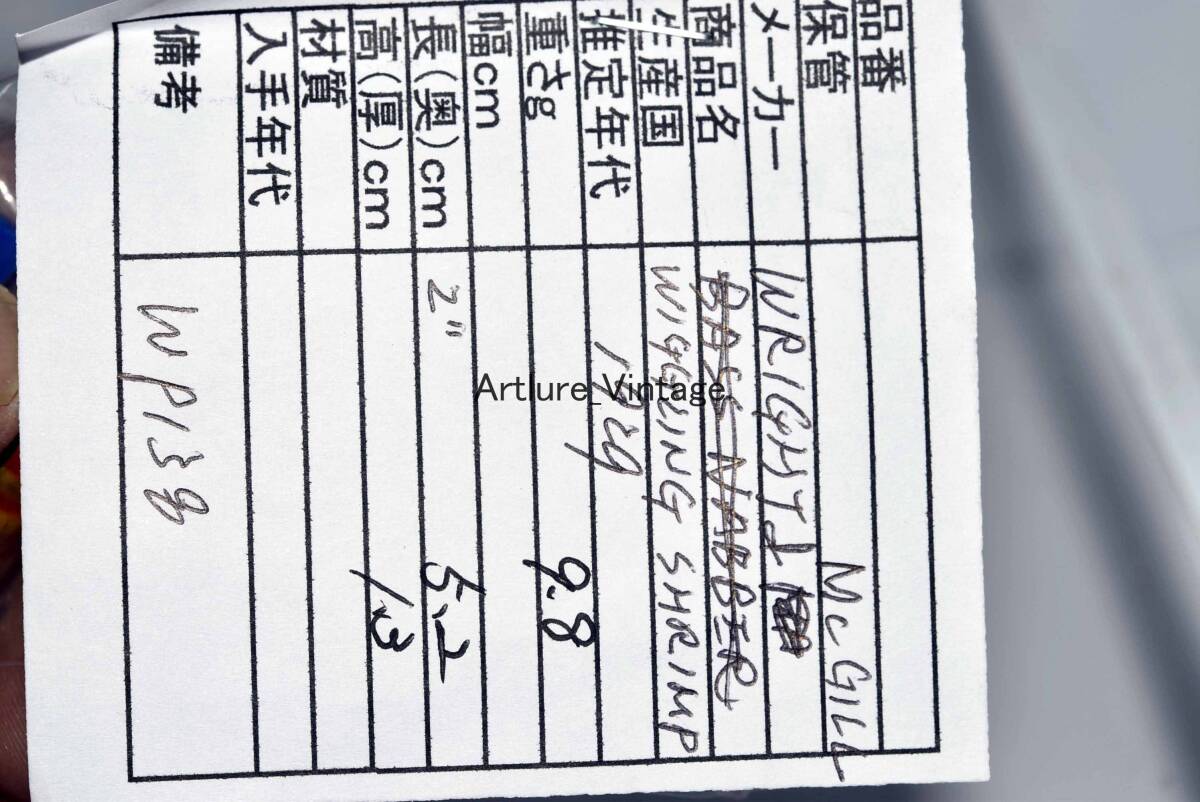 品番
保管 McGILL
メーカー WRIGHT &
商品名 BASS NABBER
生産国 WIGGLING SHRIMP
推定年代 1929
重さg 9.8
幅cm
長(奥)cm 2" 5.2
高(厚)cm 1.3
材質
入手年代
備考 WP138
Artlure_Vintage